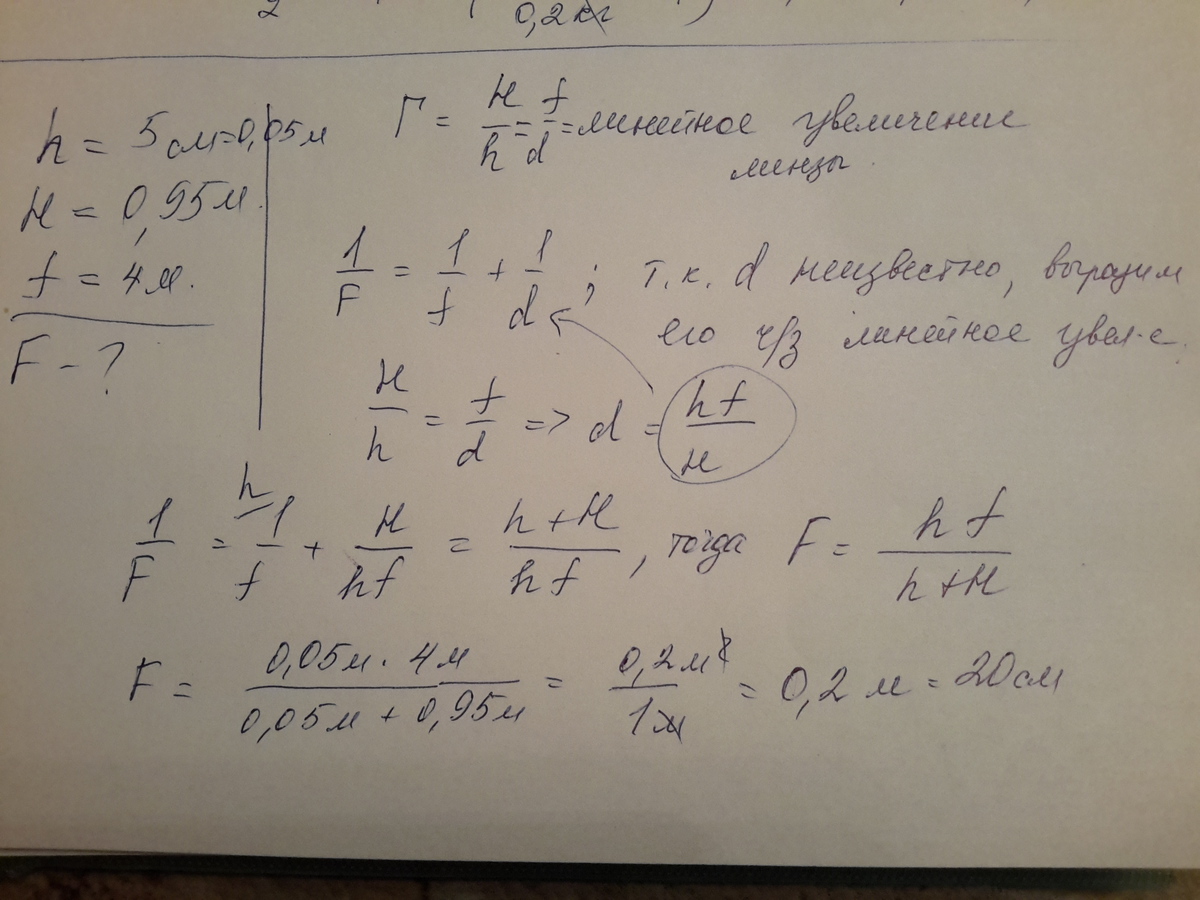 2
0,2кг
h = 5 см=0,05м
H = 0,95м.
f = 4м.
F - ?
Г = H/h = f/d = линейное увеличение
линзы.
1/F = 1/f + 1/d ; т.к. d неизвестно, выразим
его ч/з линейное увел-е.
H/h = f/d => d = hf/H
h
1/F = 1/f + H/hf = h+H/hf , тогда F = hf/h+H
F = 0,05м · 4м/0,05м + 0,95м = 0,2м²/1м = 0,2 м = 20см